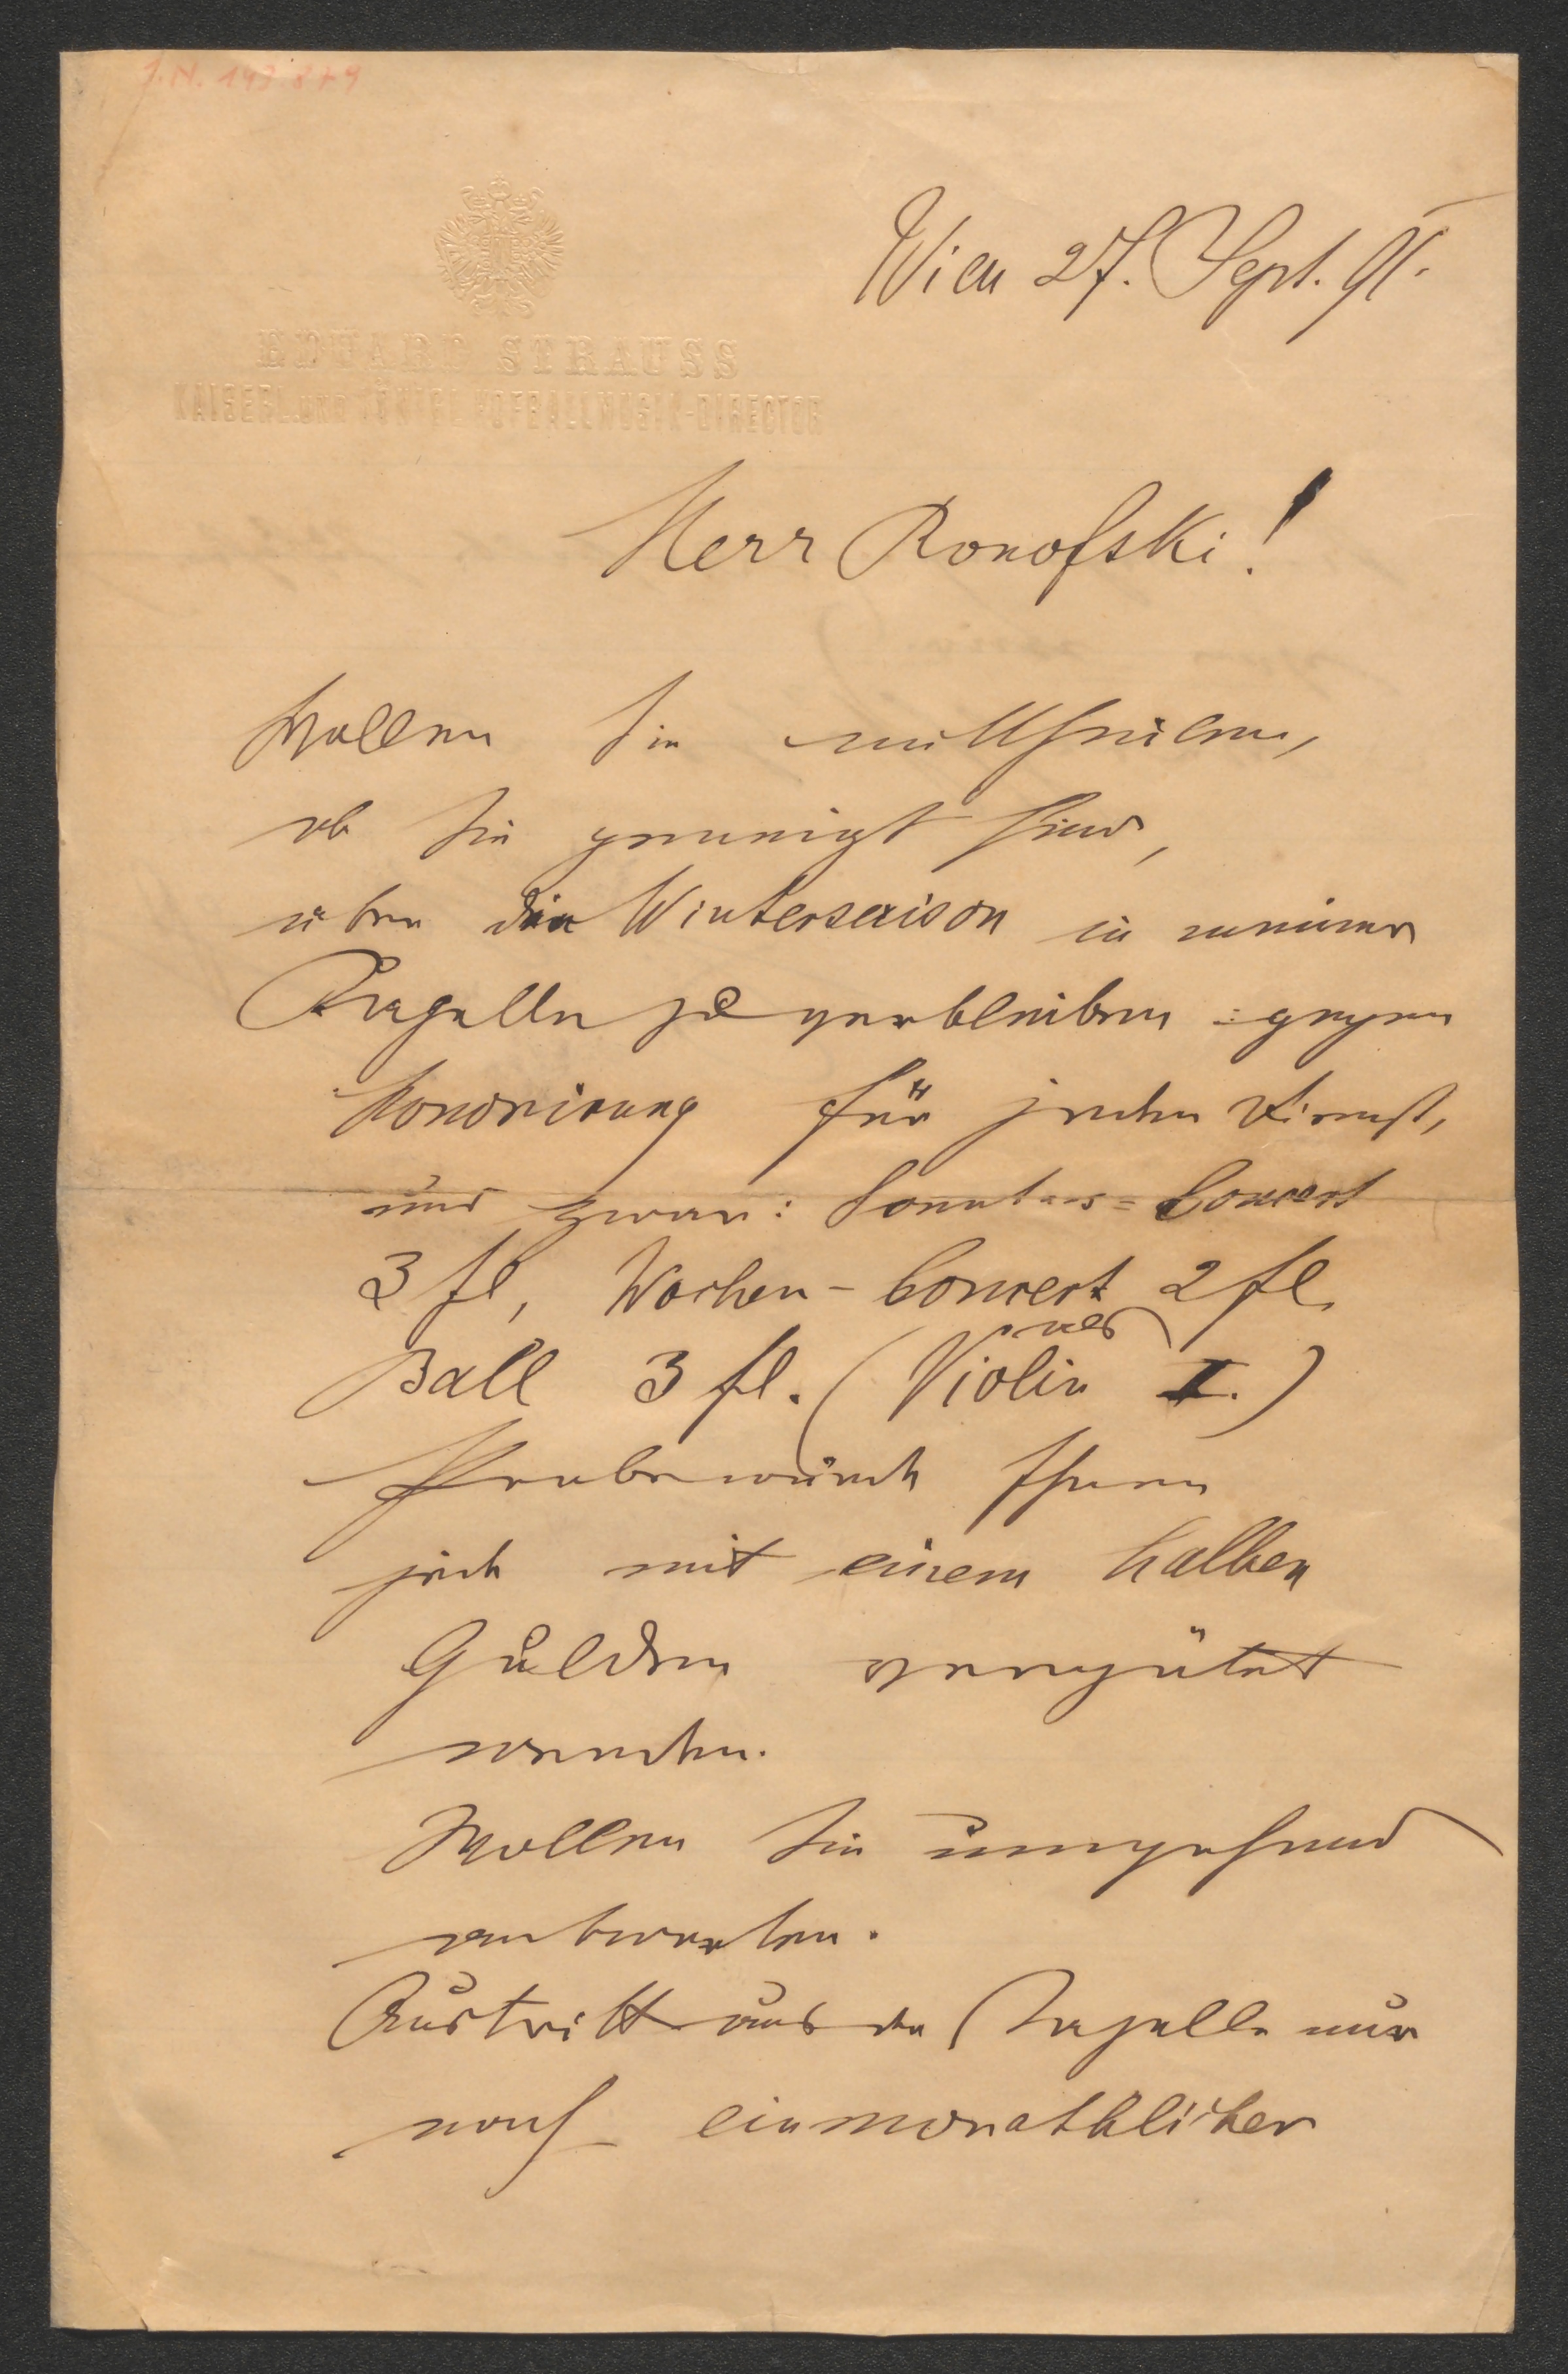 J.N. 143879
Wien 27. Sept. 91.
EDUARD STRAUSS
KAISERL. UND KÖNIGL. HOFBALLMUSIK-DIRECTOR
Herr Ronofski!
Wollen Sie mittheilen,
ob Sie geneigt sind,
über die Wintersaison in meiner
Kapelle zu verbleiben: gegen
Honorirung für jeden Dienst,
und zwar: Sonntags=Concert
3 fl, Wochen-Concert 2 fl.
Ball 3 fl. (Violin I.)
Probe würde Ihnen
jede mit einem halben
Gulden vergütet
werden.
Wollen Sie umgehend
antworten.
Austritt aus der Kapelle nur
nach einmonathlicher